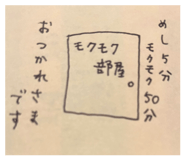 めし5分
モクモク50分
モクモク
部屋
おつかれさま
です